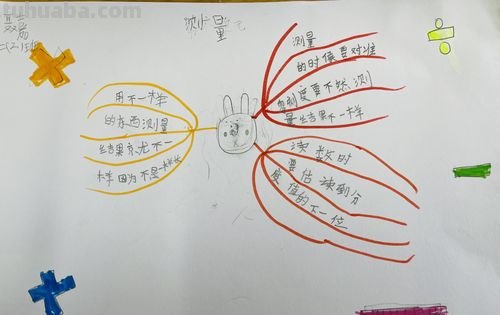 tuhuaba.com
二(2)班
测量
测量
的时候要对准
刻度要不然测
量结果不一样
用不一样
的东西测量
结果就不一
样因为不是一样长
读数时
要估读到分
度值的下一位